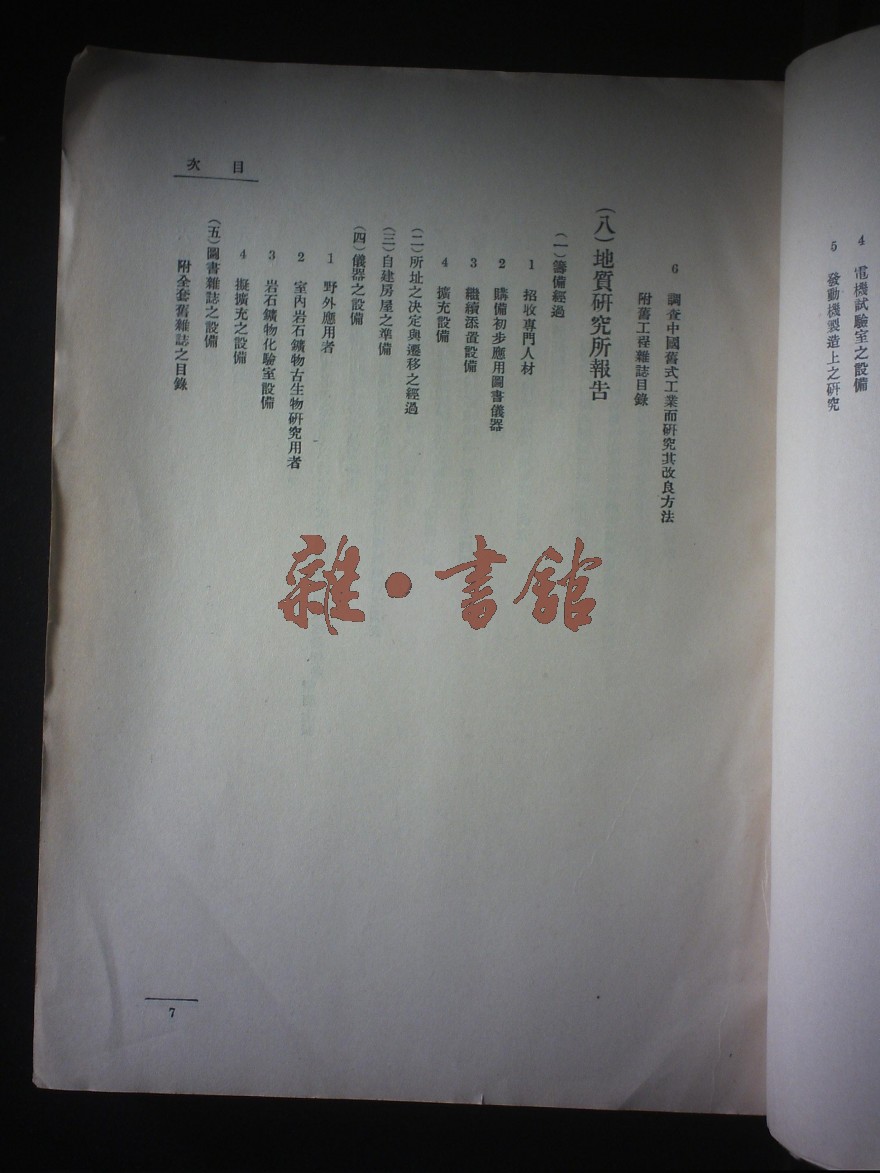 4　電機試驗室之設備
5　發動機製造上之研究
6　調查中國舊式工業而研究其改良方法
附舊工程雜誌目錄
(八)地質研究所報告
(一)籌備經過
1　招收專門人材
2　購備初步應用圖書儀器
3　繼續添置設備
4　擴充設備
(二)所址之決定與遷移之經過
(三)自建房屋之準備
(四)儀器之設備
1　野外應用者
2　室內岩石鑛物古生物研究用者
3　岩石鑛物化驗室設備
4　擬擴充之設備
(五)圖書雜誌之設備
附全套舊雜誌之目錄
次　目
7
雜·書館